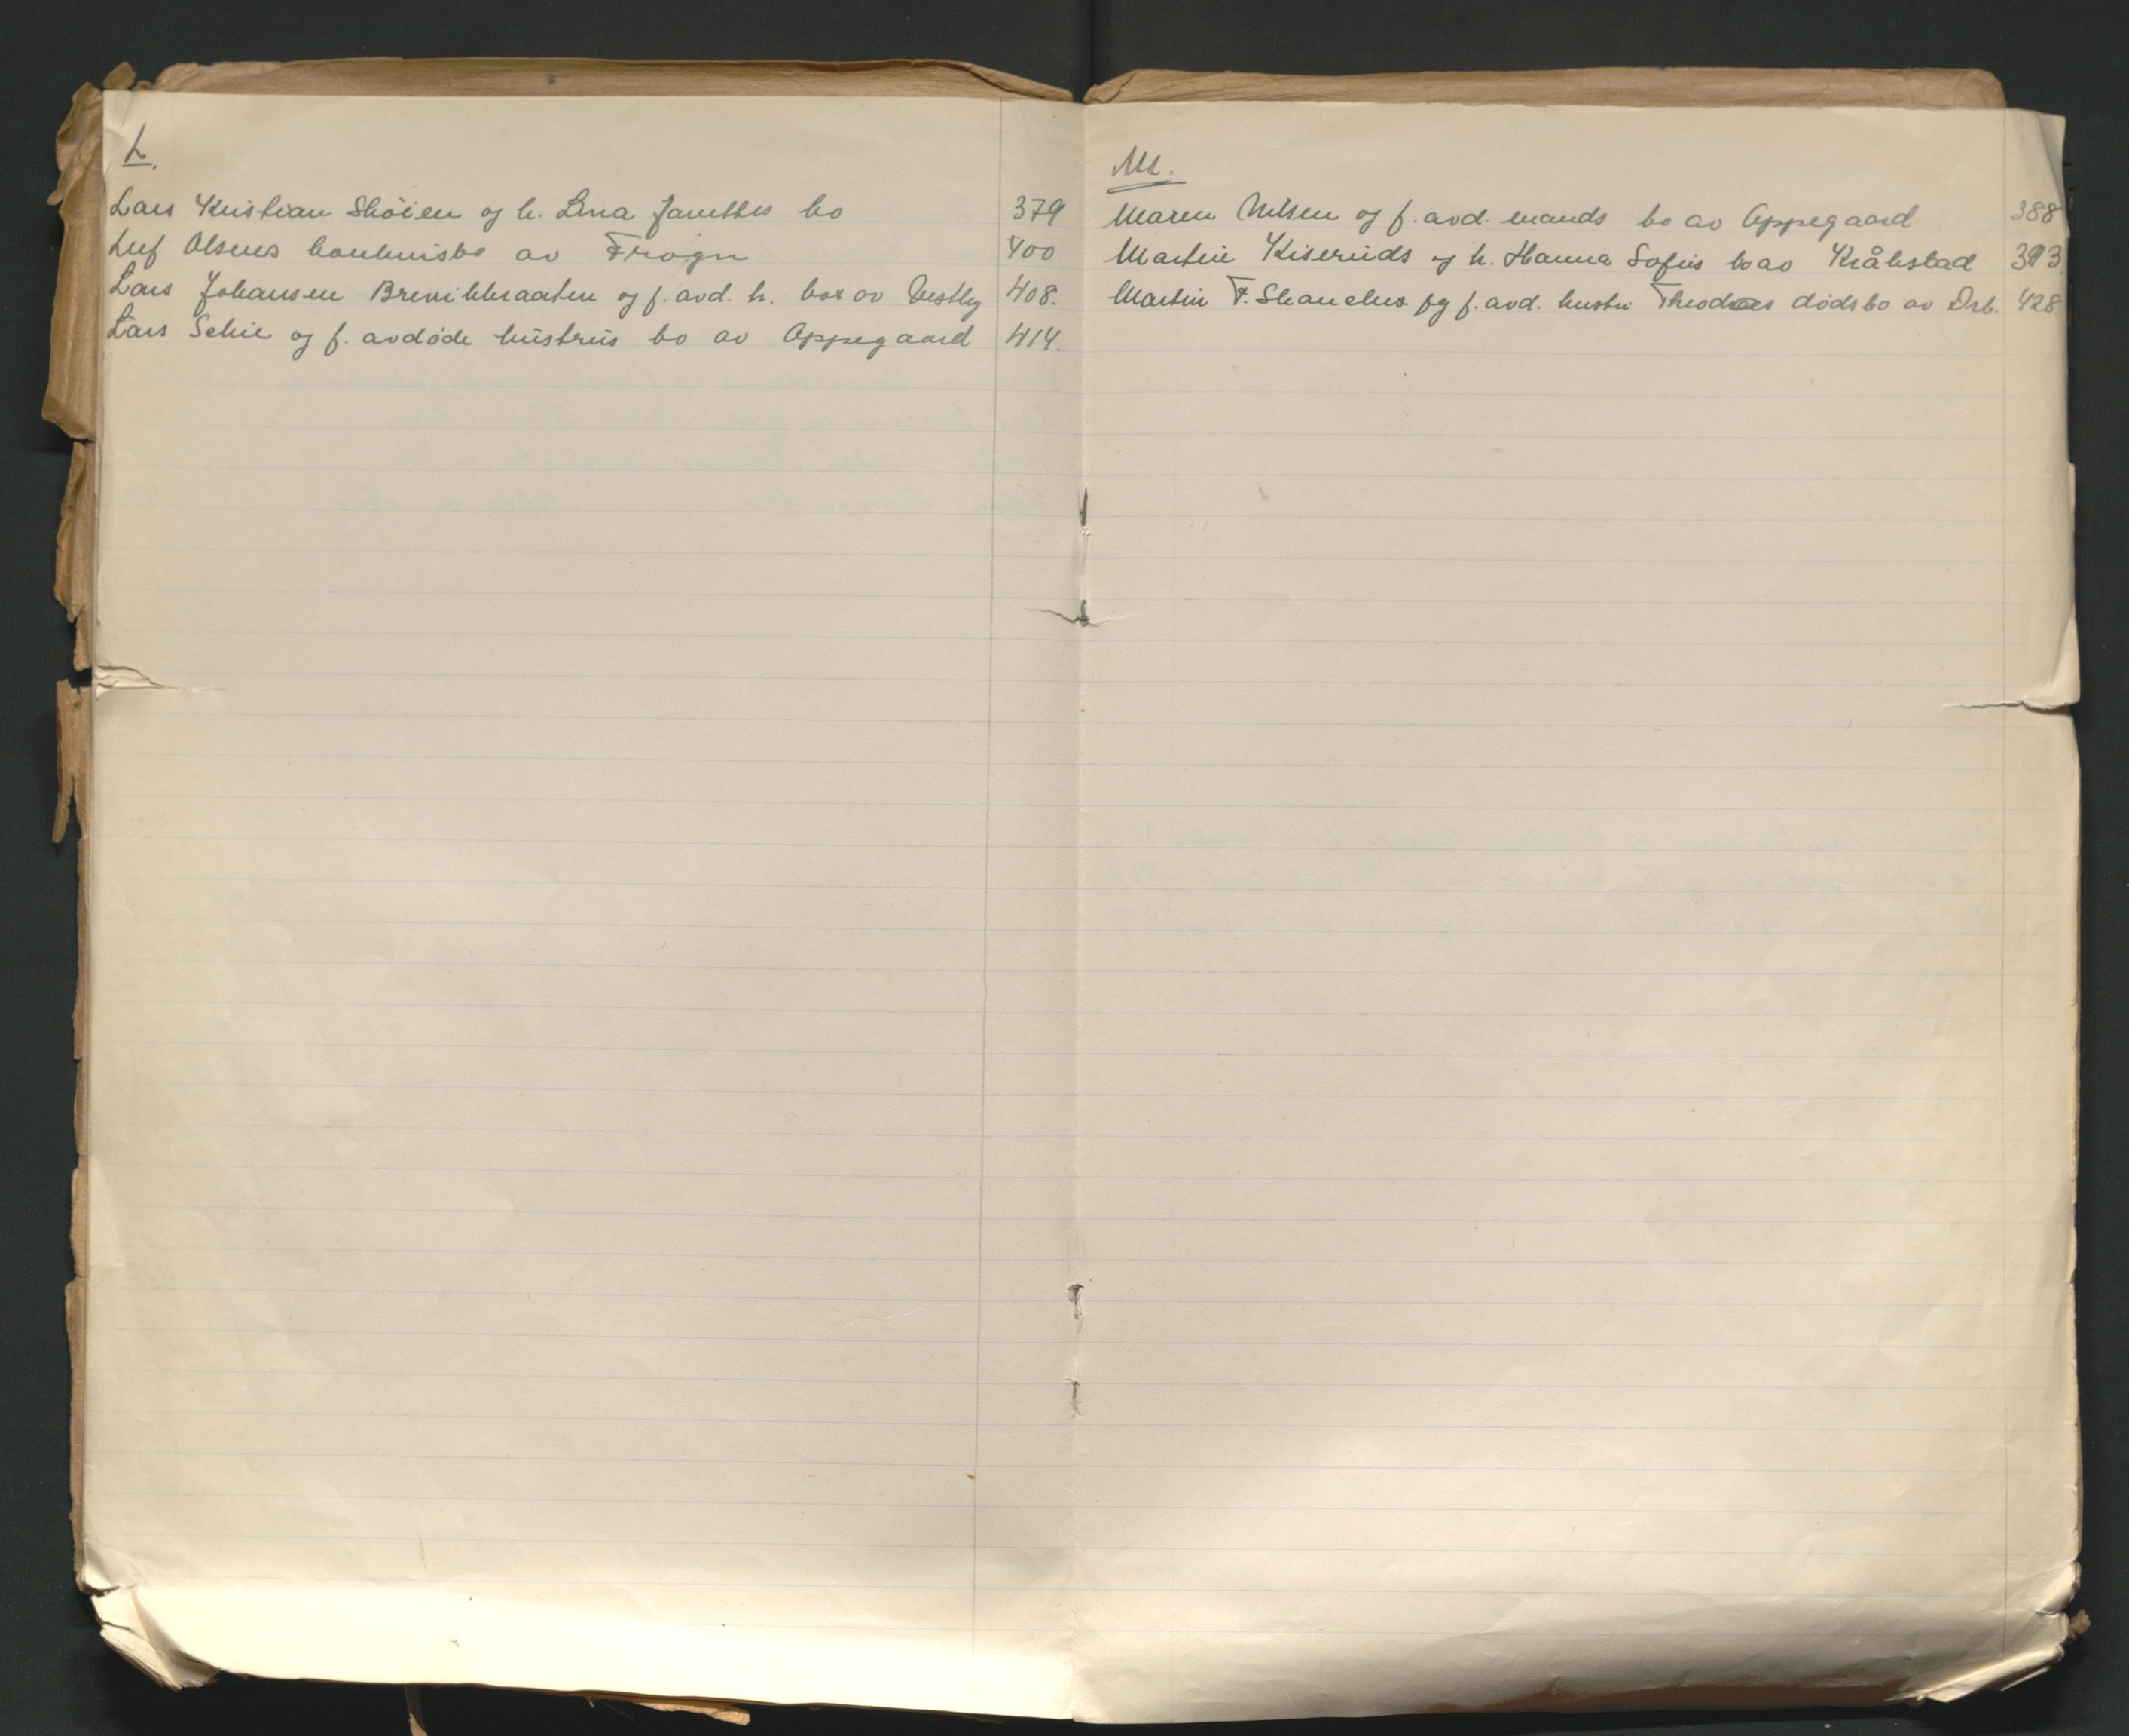 L.
Lars Kristian Skøien og h. Lina Janettes bo 379
Leif Olsens konkursbo av Frogn 400
Lars Johansen Brevikbraaten og f. avd. h. bos av Vestby 408.
Lars Schie og f. avdøde hustrus bo av Oppegaard 414.
M.
Maren Nilsen og f. avd. mands bo av Oppegaard 388
Martin Kiseruds og h. Hanna Sofies bo av Kråkstad 393
Martin F. og f. avd. hustru Theodoras dødsbo av Drb. 428